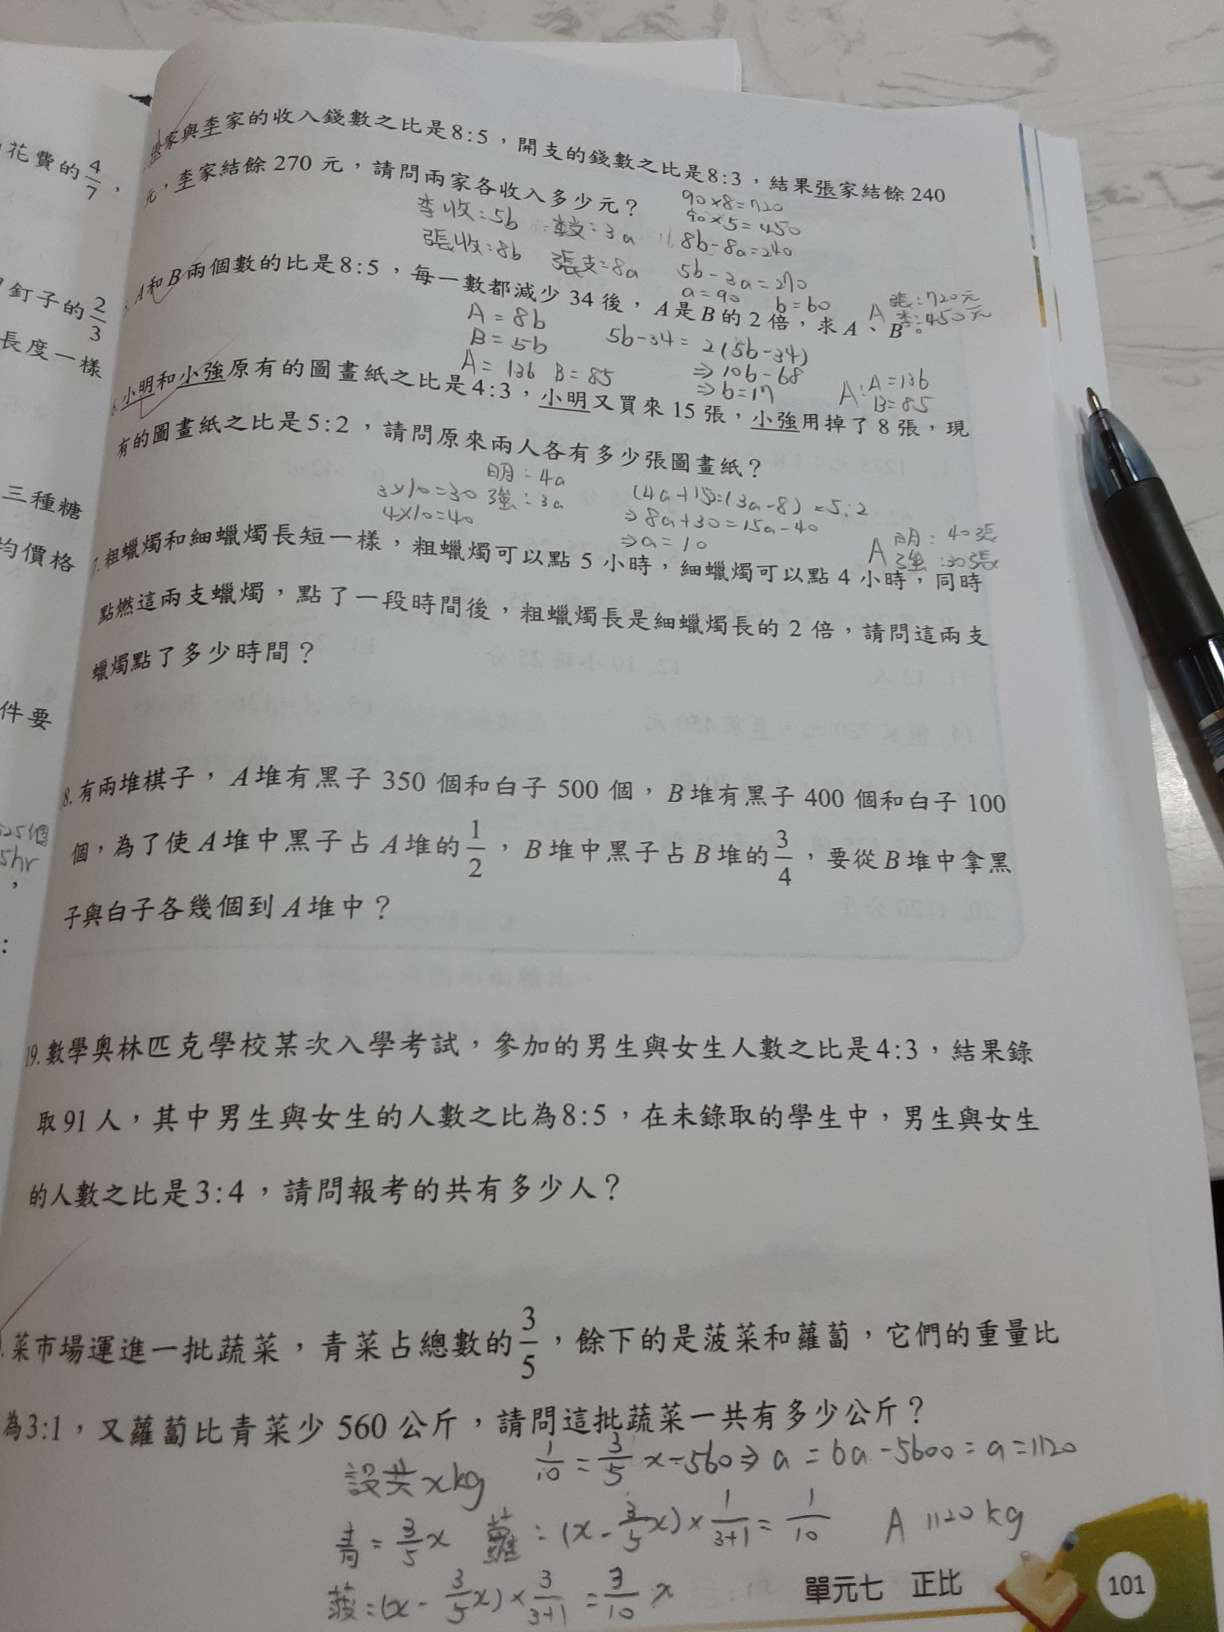 花費的 4/7 ，
釘子的 2/3
長度一樣
三種糖
均價格
件要
5hr
張家與李家的收入錢數之比是8:5，開支的錢數之比是8:3，結果張家結餘 240
元，李家結餘 270 元，請問兩家各收入多少元？
90×8=720
90×5=450
李收：5b 李支：3a 8b-8a=240
張收：8b 張支：8a 5b-3a=270
a=90 b=60
A 張：720元
李：450元
A和B兩個數的比是8:5，每一數都減少 34 後，A是B的 2 倍，求A、B。
A=8b
B=5b 5b-34=2(5b-34)
A=136 B=85 ⇒10b-68
⇒b=17
A：A=136
B=85
小明和小強原有的圖畫紙之比是4:3，小明又買來 15 張，小強用掉了 8 張，現
有的圖畫紙之比是5:2，請問原來兩人各有多少張圖畫紙？
明：4a
3×10=30 強：3a (4a+15):(3a-8)=5:2
4×10=40 ⇒8a+30=15a-40
⇒a=10
A 明：40張
強：30張
7.粗蠟燭和細蠟燭長短一樣，粗蠟燭可以點 5 小時，細蠟燭可以點 4 小時，同時
點燃這兩支蠟燭，點了一段時間後，粗蠟燭長是細蠟燭長的 2 倍，請問這兩支
蠟燭點了多少時間？
8.有兩堆棋子，A堆有黑子 350 個和白子 500 個，B堆有黑子 400 個和白子 100
個，為了使A堆中黑子占A堆的 1/2 ，B堆中黑子占B堆的 3/4 ，要從B堆中拿黑
子與白子各幾個到A堆中？
19.數學奧林匹克學校某次入學考試，參加的男生與女生人數之比是4:3，結果錄
取91人，其中男生與女生的人數之比為8:5，在未錄取的學生中，男生與女生
的人數之比是3:4，請問報考的共有多少人？
菜市場運進一批蔬菜，青菜占總數的 3/5 ，餘下的是菠菜和蘿蔔，它們的重量比
為3:1，又蘿蔔比青菜少 560 公斤，請問這批蔬菜一共有多少公斤？
設共xkg 1/10 = 3/5 x-560⇒a=6a-5600=a=1120
青=3/5 x 蘿：(x-3/5 x)×1/3+1=1/10 A 1120 kg
菠：(x-3/5 x)×3/3+1=3/10 x
單元七 正比 101